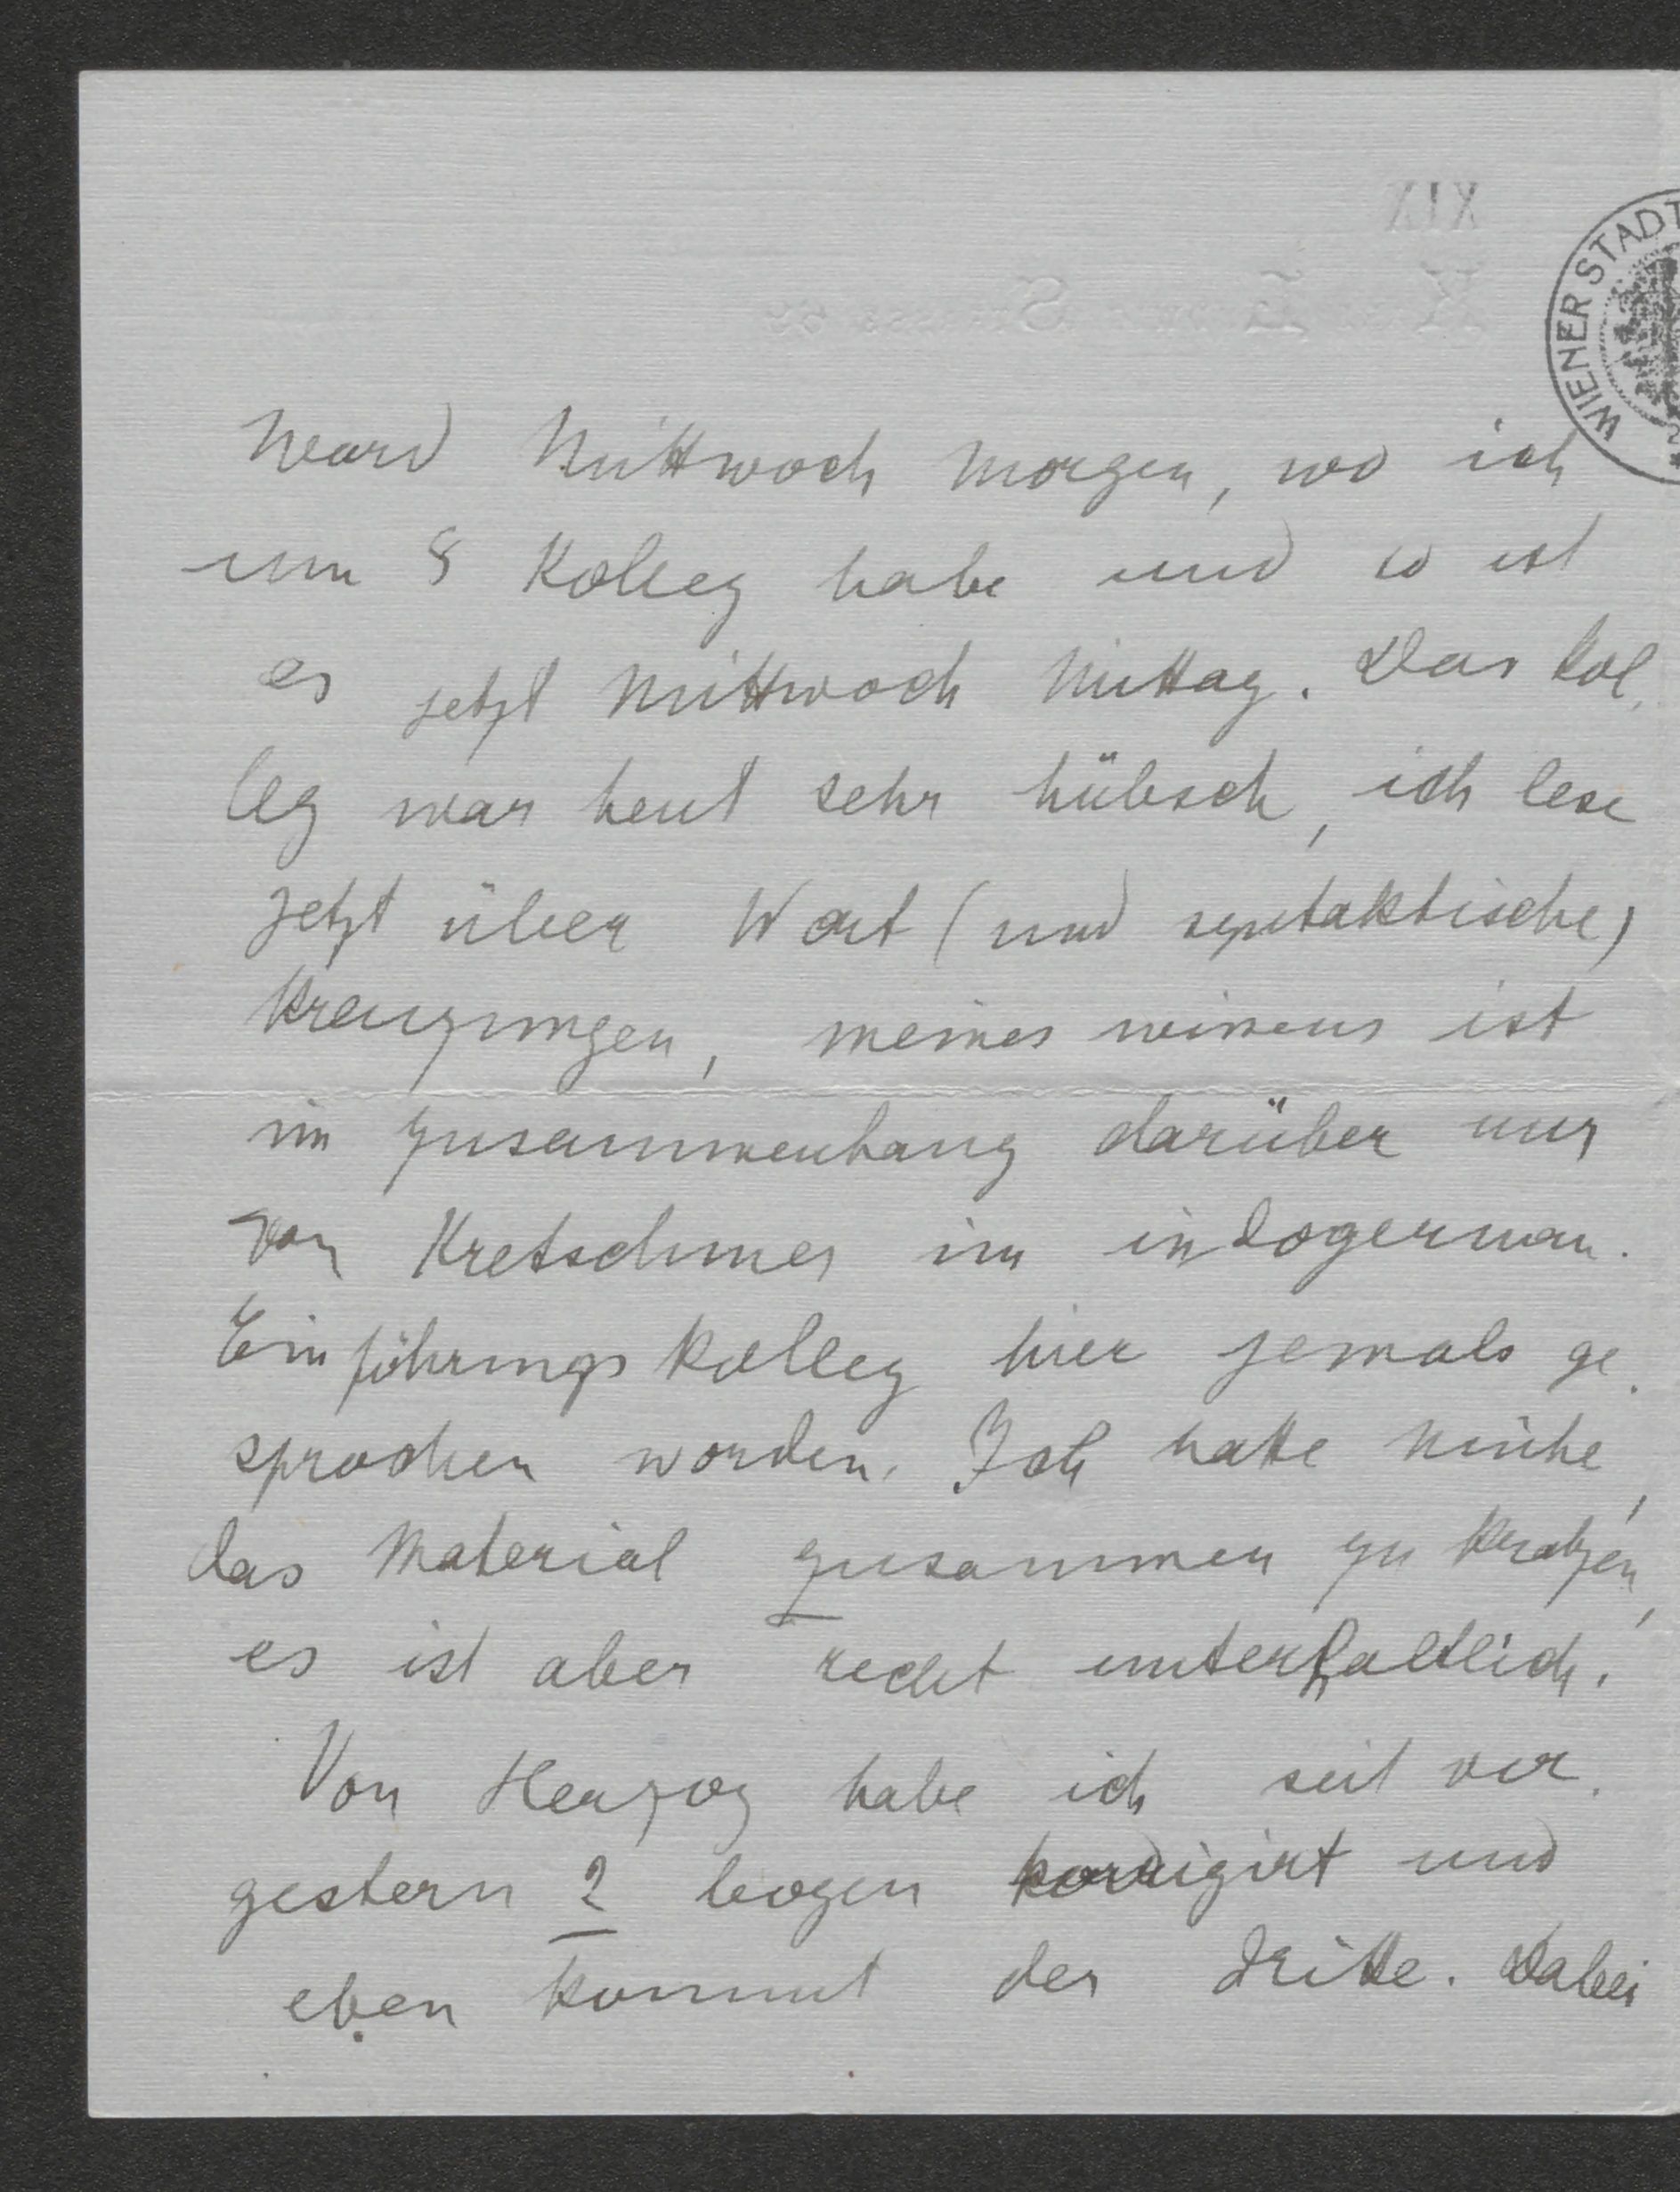 XIX
WIENER STADT
ward Mittwoch Morgen, wo ich
um 8 Kolleg habe und so ist
es jetzt Mittwoch Mittag. Das Kol-
leg war heut sehr hübsch, ich lese
jetzt über Wort (und syntaktische)
Kreuzungen, meines wissens ist
im zusammenhang darüber nur
von Kretschmer im indogerman.
Einführungskolleg hier jemals ge-
sprochen worden. Ich hatte Mühe,
das Material zusammen zu kratzen,
es ist aber recht unterhaltlich.
Von Herzog habe ich seit vor-
gestern 2 bogen korrigirt und
eben kommt der dritte. Dabei